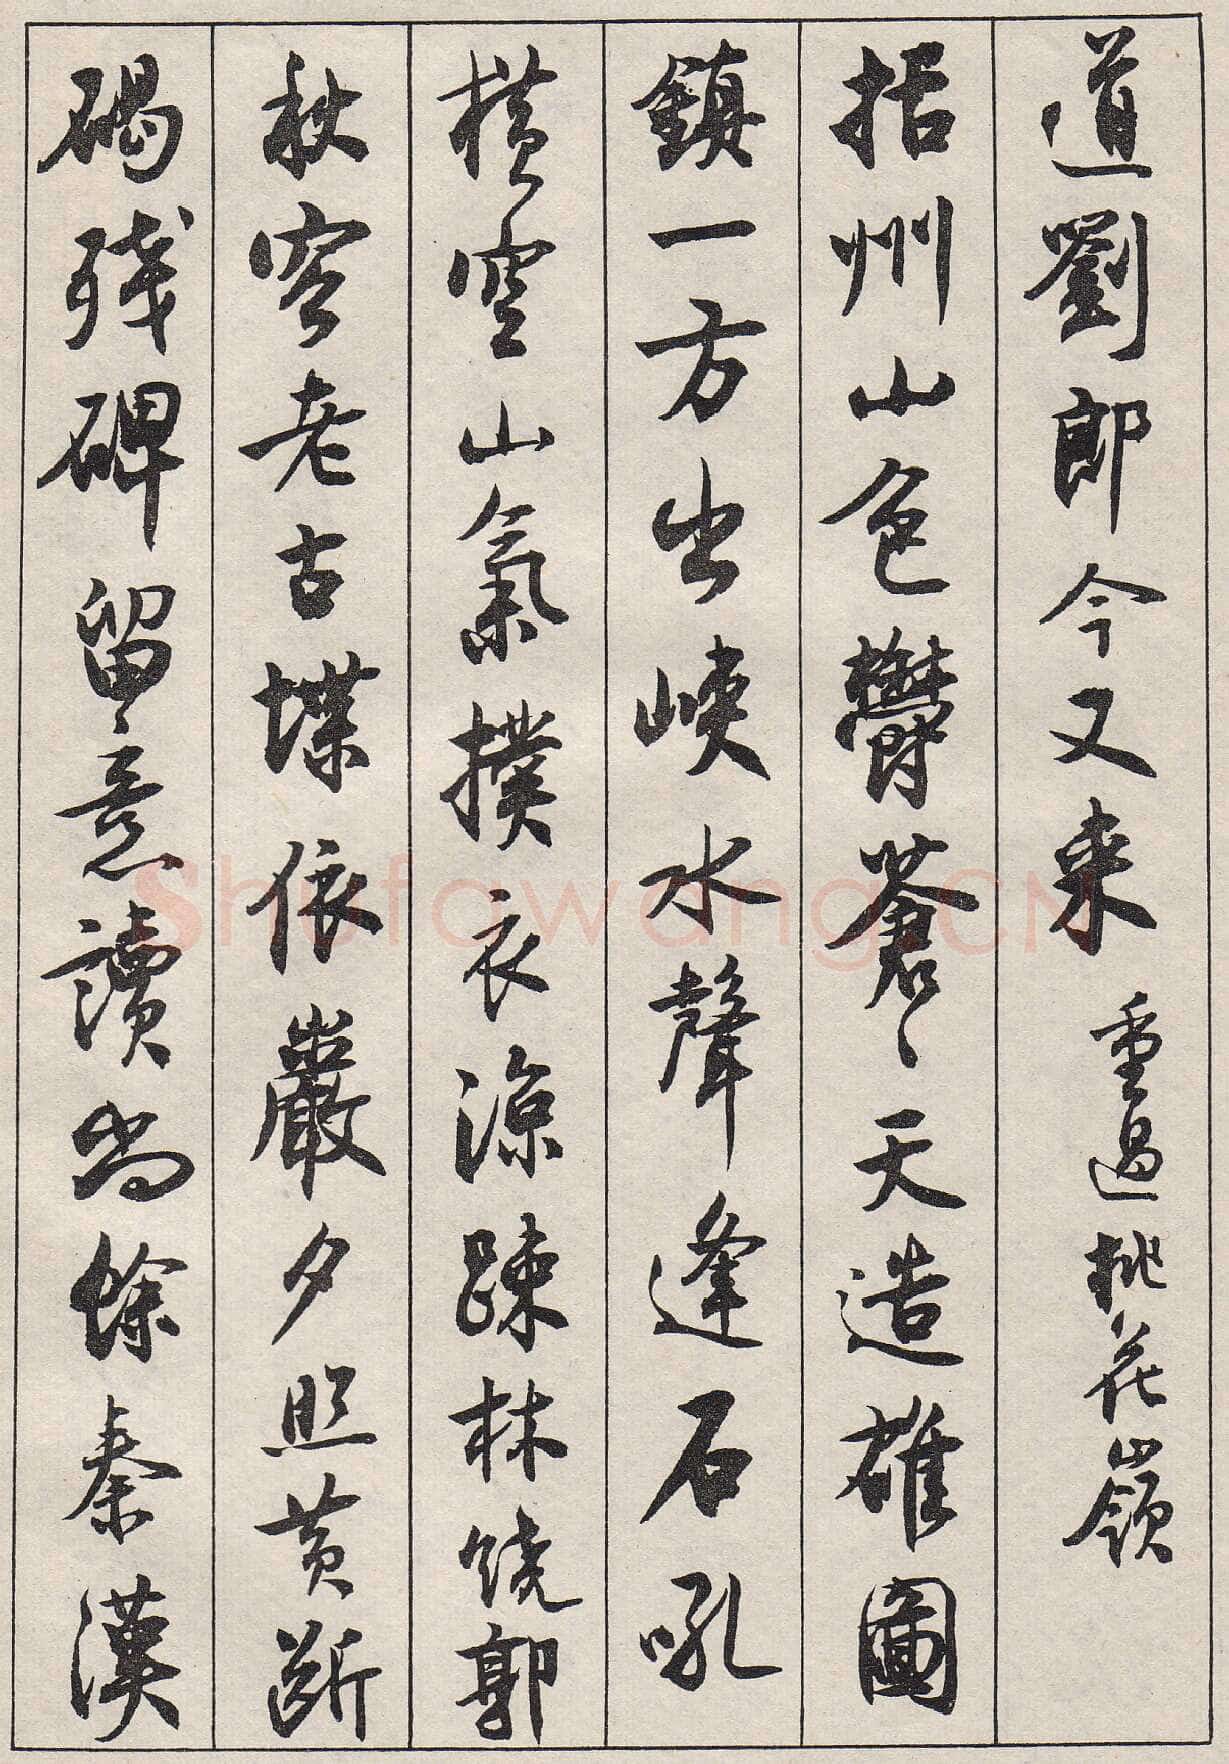 道劉郎今又来 重過桃花嶺
括州山色鬱蒼〻天造雄圖
鎮一方出峽水聲逢石吼
橫空山氣撲衣涼疎林饒郭
秋容老古堞依巖夕照黄斷
碣残碑留意讀尚餘秦漢
Shufawang.CN